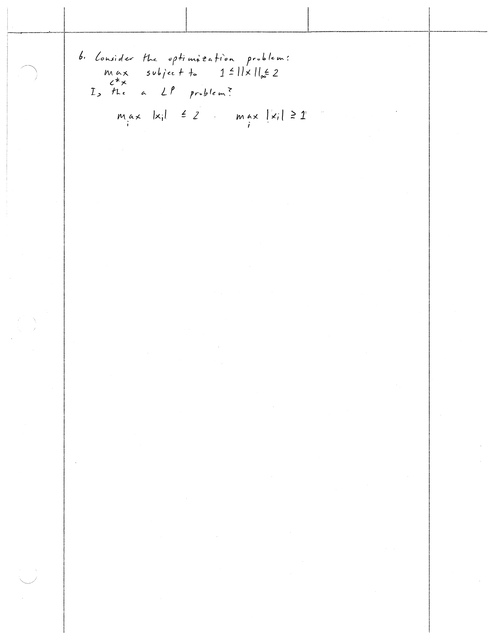 6. Consider the optimization problem:
max subject to 1 ≤ ||x||∞ ≤ 2
c*x
Is the a LP problem?
max |xi| ≤ 2 max |xi| ≥ 1
i i